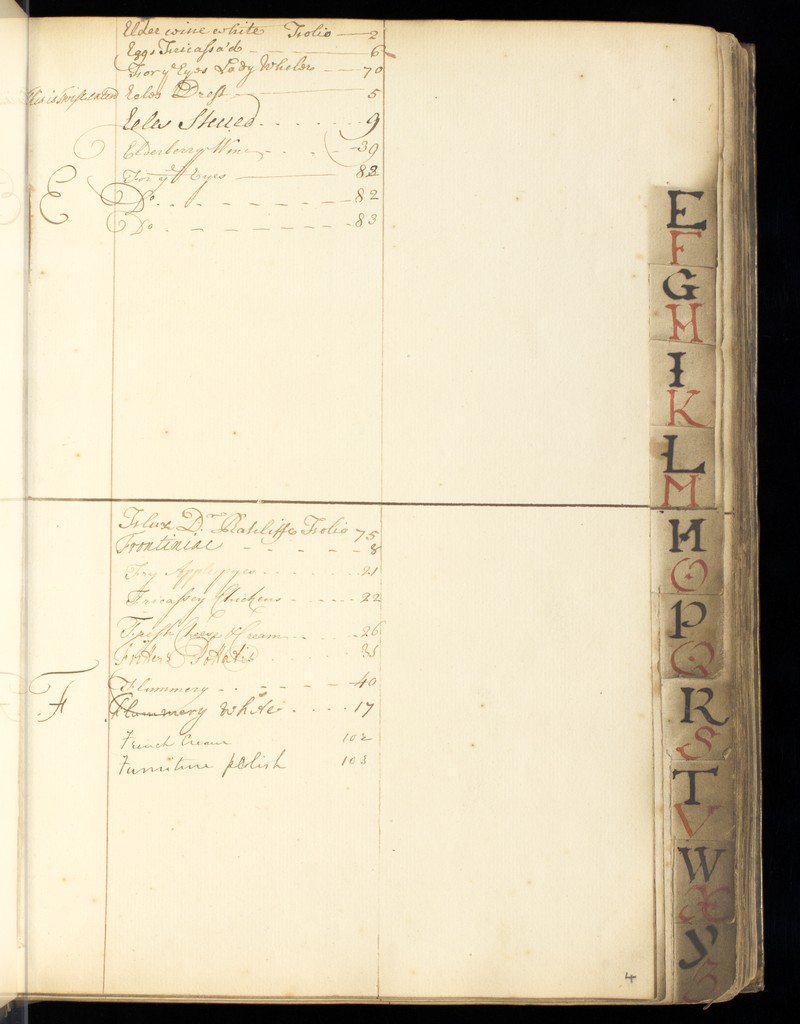 Elder wine white Folio — 2
Eggs Fricassa'd — 6
For yᵉ Eyes Lady Wheler — 70
Eeles Drest — 5
Eeles Stued . . . . . 9
Elderberry Wine - - . - 39
For yᵉ Eyes — 82
E
Do. . - - - - - - 82
Do . - - - - - - 83
Flux Dr Ratcliffe Folio 75
Frontiniac - - - - 8
Fry Applepyes . . . . . 21
Fricassey Chickens - - - - - 22
Fresh Cheese & Cream . . . 26
Friters Potatis . . . 35
Flummery - . - - - 40
F
Flummery White . . . . 17
French Cream 102
Furniture polish 103
4
E
F
G
H
I
K
L
M
N
O
P
Q
R
S
T
V
W
Æ
Y